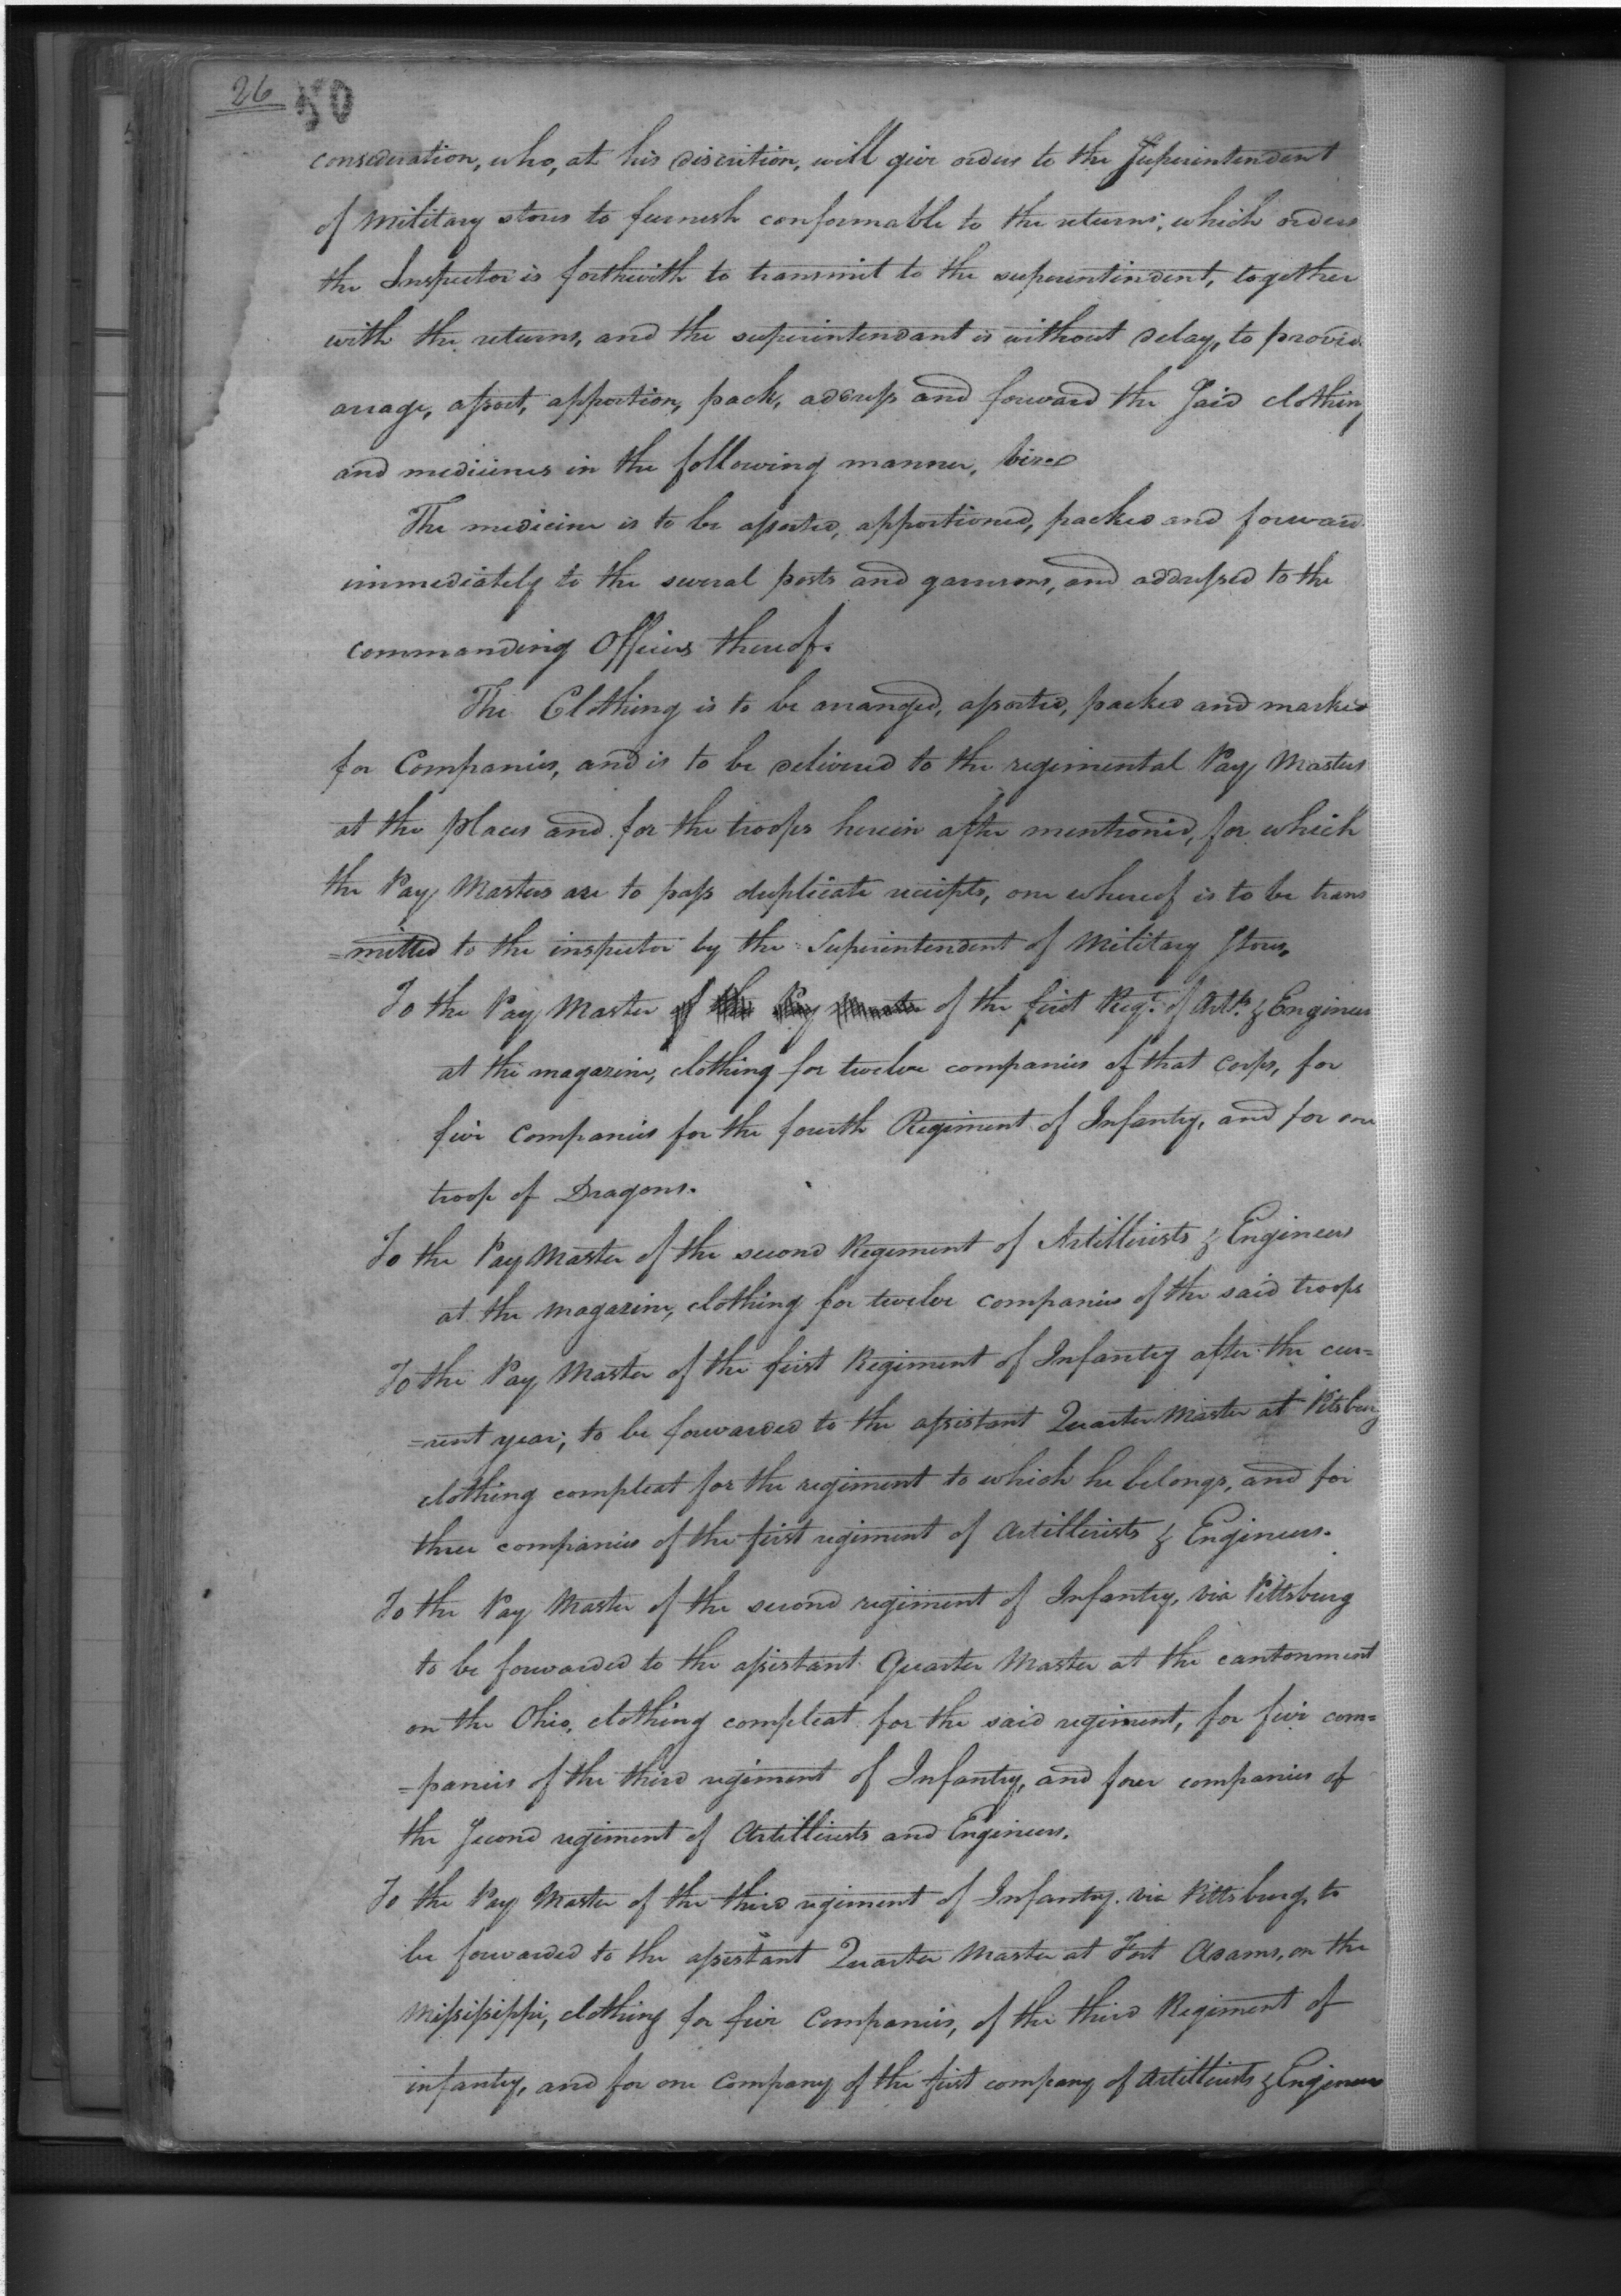 26 50
consideration, who, at his discretion, will give orders to the Superintendent
of Military stores to furnish conformable to the returns; which orders
the Inspector is forthwith to transmit to the superintendent, together
with the returns, and the superintendant is without delay, to provid
arrage, assort, apportion, pack, address and forward the Said clothing
and medicines in the following manner, vized
The medicine is to be assorted, apportioned, packed and forward
immediately to the several posts and garrisons, and addressed to the
commanding Officers thereof.
The Clothing is to be arranged, assorted, packed and marked
for Companies, and is to be delivered to the regimental Pay Masters
at the places and for the troops herein after mentioned, for which
the Pay Masters are to pass duplicate receipts, one whereof is to be trans
=mitted to the inspector by the Superintendent of Military Stores.
To the Pay Master of the Pay Master of the first Regt. of Arts. & Engineers
at the magazine, clothing for twelve companies of that Corps, for
five Companies for the fourth Regiment of Infantry, and for one
troop of Dragons.
To the Pay Master of the second Regiment of Artillerists & Engineers
at the Magazine, clothing for twelve companies of the said troops
To the Pay Master of the first Regiment of Infantry after the cur=
=rent year; to be forwarded to the assistant Quarter Master at Pitsburg
clothing compleat for the regiment to which he belongs, and for
three companies of the first regiment of Artillerists & Engineers.
To the Pay Master of the second regiment of Infantry, via Pittsburg
to be forwarded to the assistant Quarter Master at the cantonment
on the Ohio, clothing compleat for the said regiment, for five com=
=panies of the third regiment of Infantry, and four companies of
the Second regiment of Artillerists and Engineers.
To the Pay Master of the third regiment of Infantry. via Pittsburg, to
be forwarded to the assistant Quarter Master at Fort Adams, on the
Missisippi, clothing for five Companies, of the third Regiment of
infantry, and for one Company of the first company of Artillerists & Engineers